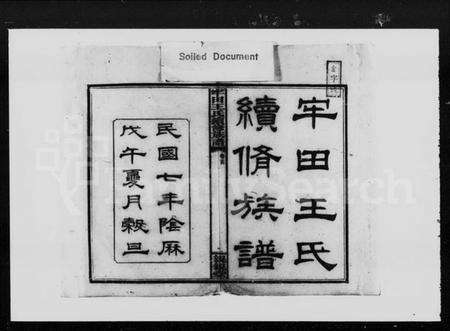 Soiled Document
牢田王氏
續脩族譜
民國七年陰厤
戊午夏月穀旦